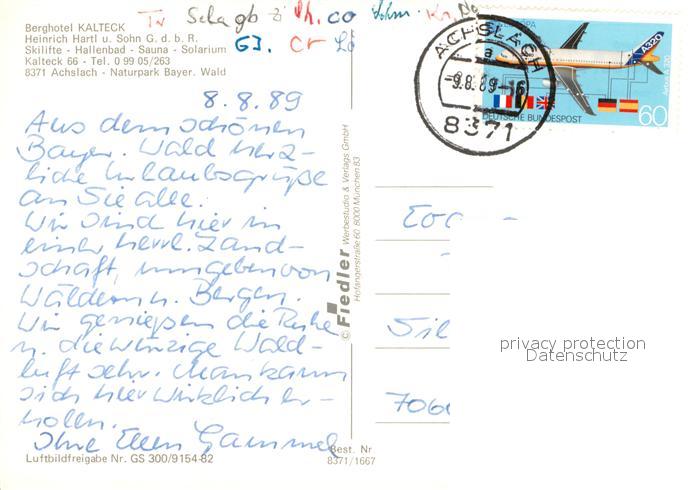 Berghotel KALTECK
Heinrich Hartl u. Sohn G. d. b. R.
Skilifte - Hallenbad - Sauna - Solarium
Kalteck 66 - Tel. 0 99 05/263
8371 Achslach - Naturpark Bayer. Wald
8.8.89
Aus dem schönen
Bayer. Wald herz-
liche Urlaubsgrüße
an Sie alle.
Wir sind hier in
einer herrl. Land-
schaft, umgeben von
Wäldern u. Bergen.
Wir genießen die Ruhe
u. die würzige Wald-
luft sehr. Man kann
sich hier wirklich er-
holen.
Ihre Ellen Gammel
Luftbildfreigabe Nr. GS 300/9154-82
Best. Nr
8371/1667
© Fiedler Werbestudio & Verlags GmbH
Hofangerstraße 60, 8000 München 83
ACHSLACH
a
-9.8.89-16
8371
A320
Airbus A 320
DEUTSCHE BUNDESPOST
60
Sil
706
privacy protection
Datenschutz